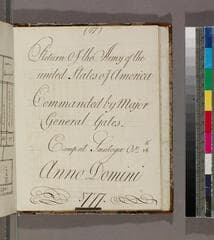 Return Of the Army of the
united States of America
Commanded by Major
General Gates.
Camp at Saratoga Oct. th
Anno Domini
1777.